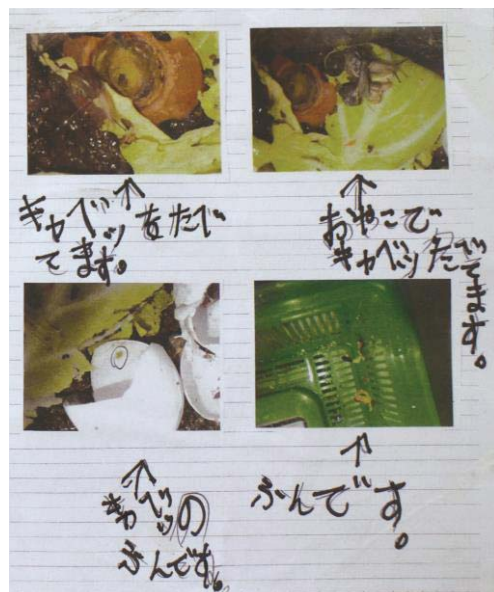 キャベツをたべ
てます。
おやこで
キャベツたべ
てます。
キャベツの
ふんです。
ふんです。